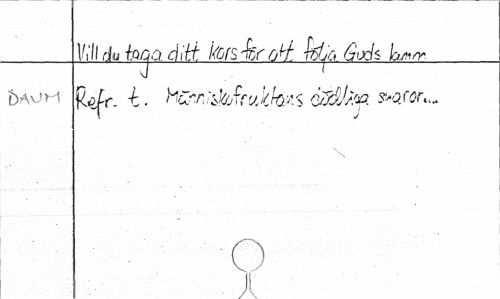 Vill du taga ditt kors för att följa Guds lamm
DAUM Refr. t. Människofruktans dödliga snaror...